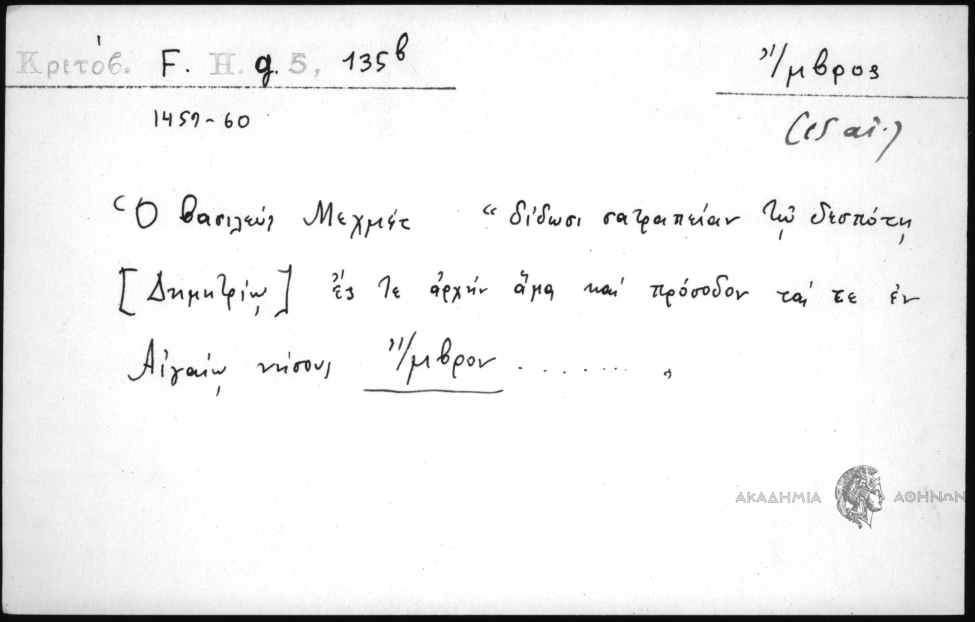 Κριτόβ. F. H. g. 5, 135β
Ἴμβρος
1459-60
(ις αἰ.)
Ὁ βασιλεὺς Μεχμὲτ “δίδωσι σατραπείαν τῷ δεσπότῃ
[Δημητρίῳ] ἔς τε ἀρχὴν ἅμα καὶ πρόσοδον τάς τε ἐν
Αἰγαίῳ νήσους Ἴμβρον ........„
ΑΚΑΔΗΜΙΑ ΑΘΗΝΩΝ